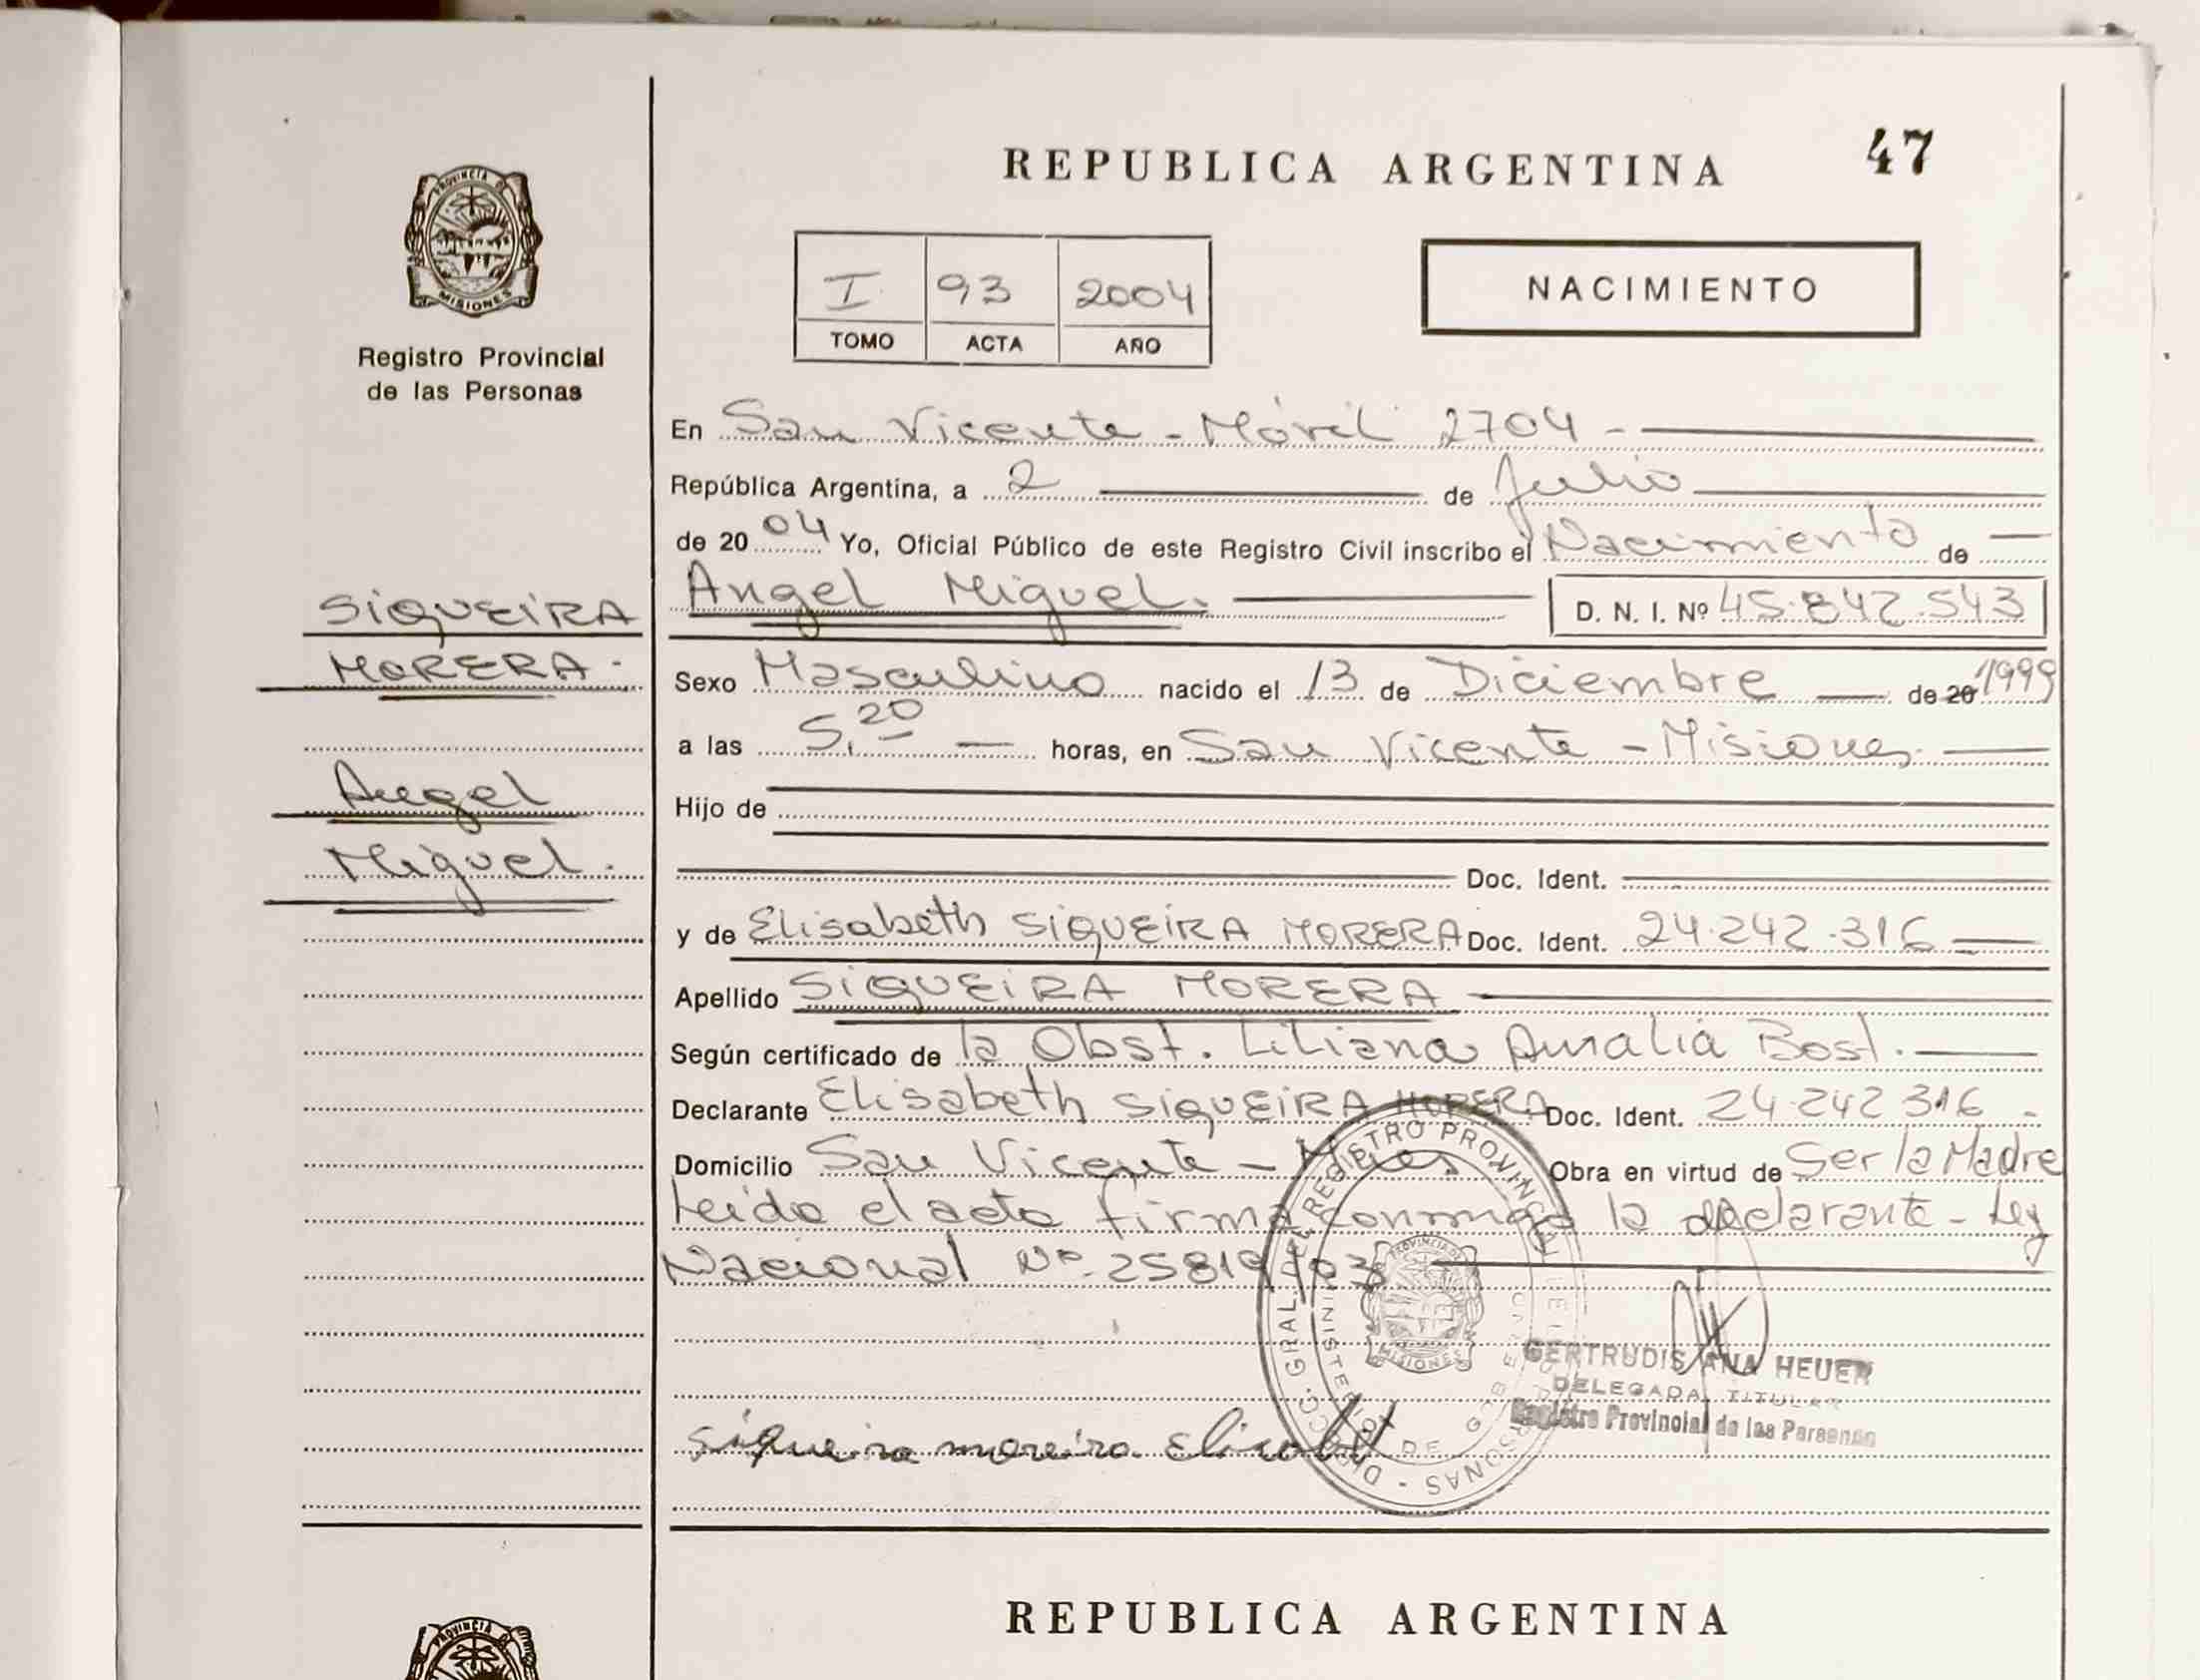 REPUBLICA ARGENTINA
47
PROVINCIA DE
MISIONES
Registro Provincial
de las Personas
I 93 2004
TOMO ACTA AÑO
NACIMIENTO
En San Vicente - Móvil 2704 -
República Argentina, a 2 de Julio
de 2004 Yo, Oficial Público de este Registro Civil inscribo el Nacimiento de
Angel Miguel.
D. N. I. Nº 45.842.543
SIQUEIRA
MORERA.
Angel
Miguel.
Sexo Masculino nacido el 13 de Diciembre de 20 1999
a las 5,20 horas, en San Vicente - Misiones
Hijo de
Doc. Ident.
y de Elisabeth SIQUEIRA MORERA Doc. Ident. 24.242.316
Apellido SIQUEIRA MORERA
Según certificado de la Obst. Liliana Amalia Bost.
Declarante Elisabeth SIQUEIRA MORERA Doc. Ident. 24.242 316 -
Domicilio San Vicente - Mnes Obra en virtud de Ser la Madre
Leida el acta firma conmigo la declarante - Ley
Nacional Nº 25819/03
DIRECC. GRAL. DEL REGISTRO PROVINCIAL DE PERSONAS -
MINISTERIO DE GOBIERNO
PROVINCIA DE
MISIONES
GERTRUDIS ANA HEUER
DELEGADA TITULAR
Registro Provincial de las Personas
siqueira moreira Elisabet
REPUBLICA ARGENTINA
PROVINCIA DE